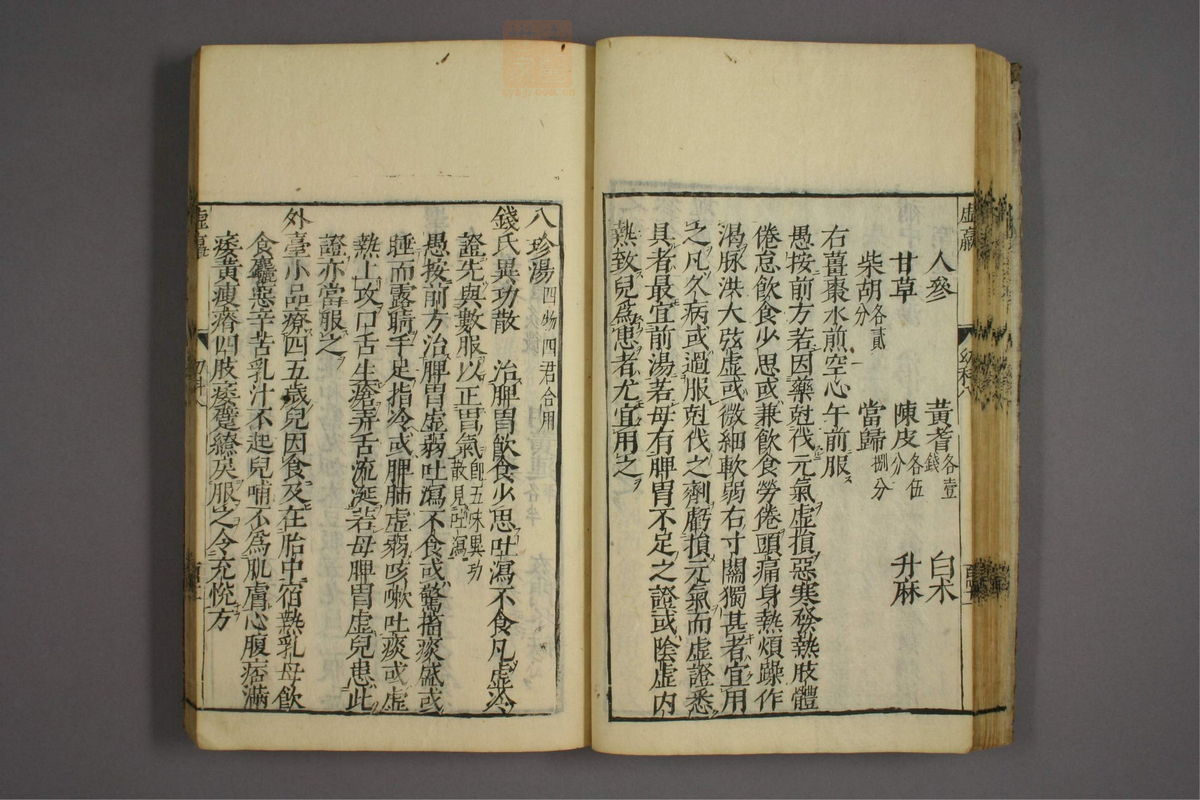 虛羸
人參 黃耆各壹錢 白朮
甘草 陳皮各伍分 升麻
柴胡各貳分 當歸捌分
右薑棗水煎空心午前服
愚按前方若因藥尅伐元氣虛損惡寒發熱肢體
倦怠飲食少思或兼飲食勞倦頭痛身熱煩躁作
渴脉洪大弦虛或微細軟弱右寸關獨甚者宜用
之凡久病或過服尅伐之劑虧損元氣而虛證悉
具者最宜前湯若母有脾胃不足之證或陰虛內
熱致兒爲患者尤宜用之
八珍湯四物四君合用
錢氏異功散 治脾胃飲食少思吐瀉不食凡虛冷
證先與數服以正胃氣卽五味異功散見吐瀉
愚按前方治脾胃虛弱吐瀉不食或驚搐痰盛或
睡而露睛手足指冷或脾肺虛弱咳嗽吐痰或虛
熱上攻口舌生瘡弄舌流涎若母脾胃虛兒患此
證亦當服之
外臺小品療四五歲兒因食及在胎中宿熱乳母飲
食麤惡辛苦乳汁不起兒哺不爲肌膚心腹痞滿
痿黃瘦瘠四肢痿躄繚戾服之令充悅方
虛羸